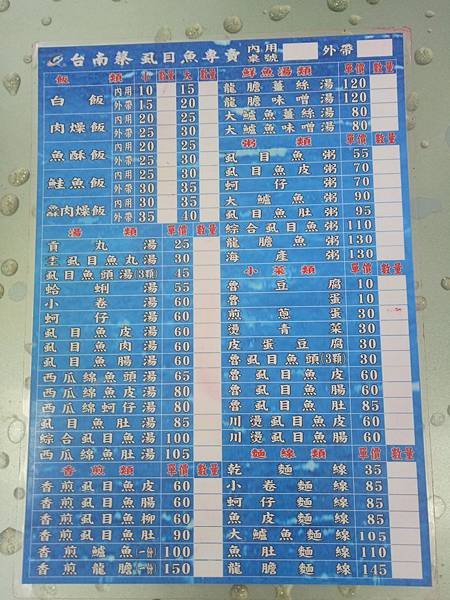 台南蔡虱目魚專賣 內用桌號 外帶
飯類 小 數量 大 數量
白飯 內用 10 15
外帶 15 20
肉燥飯 內用 20 25
外帶 25 30
魚酥飯 內用 20 25
外帶 25 30
鮭魚飯 內用 25 30
外帶 30 35
肉燥飯 內用 30 35
外帶 35 40
湯類 單價 數量
貢丸湯 25
虱目魚丸湯 30
虱目魚頭湯(3顆) 45
蛤蜊湯 55
小卷湯 60
蚵仔湯 60
虱目魚皮湯 60
虱目魚肉湯 60
虱目魚腸湯 60
西瓜綿魚頭湯 65
西瓜綿魚皮湯 80
西瓜綿蚵仔湯 80
虱目魚肚湯 85
綜合虱目魚湯 100
西瓜綿魚肚湯 105
香煎類 單價 數量
香煎虱目魚皮 60
香煎虱目魚腸 60
香煎虱目魚柳 60
香煎虱目魚肚 90
香煎鱸魚(一份) 100
香煎龍膽(一份) 150
鮮魚湯類 單價 數量
龍膽薑絲湯 120
龍膽味噌湯 120
大鱸魚薑絲湯 80
大鱸魚味噌湯 80
粥類 單價 數量
虱目魚粥 55
虱目魚皮粥 70
蚵仔粥 70
大鱸魚粥 90
虱目魚肚粥 95
綜合虱目魚粥 110
龍膽魚粥 130
海產粥 130
小菜類 單價 數量
魯豆腐 10
魯蛋 10
煎蔥蛋 30
燙青菜 30
皮蛋豆腐 30
魯虱目魚頭(3顆) 30
魯虱目魚皮 60
魯虱目魚腸 60
魯虱目魚肚 85
川燙虱目魚皮 60
川燙虱目魚腸 60
麵線類 單價 數量
乾麵線 35
小卷麵線 85
蚵仔麵線 85
魚皮麵線 85
大鱸魚麵線 105
魚肚麵線 110
龍膽麵線 145